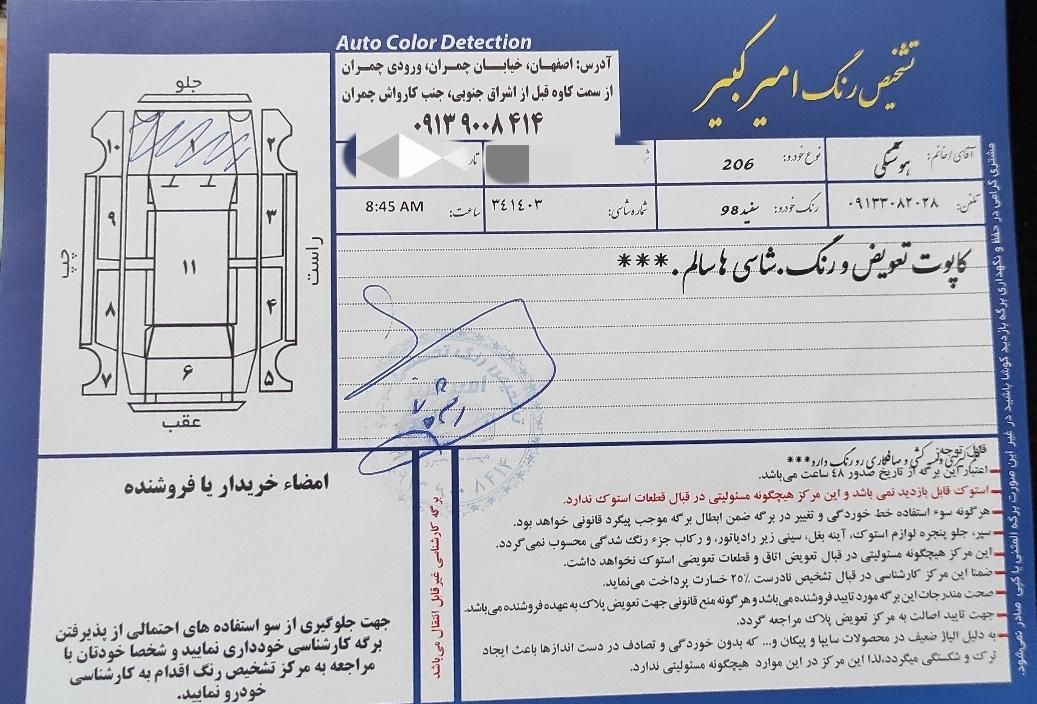 Auto Color Detection
تشخیص رنگ امیرکبیر
آدرس: اصفهان، خیابان چمران، ورودی چمران
از سمت کاوه قبل از اشراق جنوبی، جنب کارواش چمران
۰۹۱۳ ۹۰۰۸ ۴۱۴
آقای/خانم:
نوع خودرو: 206
تار
تلفن: ۰۹۱۳۳۰۸۲۰۲۸
رنگ خودرو: سفید 98
شماره شاسی: ۳۴۱۴۰۳
ساعت: 8:45 AM
کاپوت تعویض و رنگ. شاسی ها سالم. ***
جلو
۱۰ ۱ ۲
۹ ۳
چپ
راست
۱۱
۸ ۴
۷ ۶ ۵
عقب
امضاء خریدار یا فروشنده
جهت جلوگیری از سو استفاده های احتمالی از پذیرفتن
برگه کارشناسی خودداری نمایید و شخصا خودتان با
مراجعه به مرکز تشخیص رنگ اقدام به کارشناسی
خودرو نمایید.
برگه کارشناسی غیرقابل انتقال می‌باشد
قابل توجه:
و صافکاری رو رنگ دارد***
اعتبار این برگه از تاریخ صدور ۴۸ ساعت می‌باشد.
استوک قابل بازدید نمی باشد و این مرکز هیچگونه مسئولیتی در قبال قطعات استوک ندارد.
هرگونه سوء استفاده خط خوردگی و تغییر در برگه ضمن ابطال برگه موجب پیگرد قانونی خواهد بود.
سپر، جلو پنجره لوازم استوک، آینه بغل، سینی زیر رادیاتور، و رکاب جزء رنگ شدگی محسوب نمی‌گردد.
این مرکز هیچگونه مسئولیتی در قبال تعویض اتاق و قطعات تعویضی استوک نخواهد داشت.
ضمنا این مرکز کارشناسی در قبال تشخیص نادرست ۲۵٪ خسارت پرداخت می‌نماید.
صحت مندرجات این برگه مورد تایید فروشنده می‌باشد و هرگونه منع قانونی جهت تعویض پلاک به عهده فروشنده می‌باشد.
جهت تایید اصالت به مرکز تعویض پلاک مراجعه گردد.
به دلیل آلیاژ ضعیف در محصولات سایپا و پیکان و... که بدون خوردگی و تصادف در دست اندازها باعث ایجاد
ترک و شکستگی میگردد، لذا این مرکز در این موارد هیچگونه مسئولیتی ندارد.
مشتری گرامی در حفظ و نگهداری برگه بازدید کوشا باشید در غیر این صورت برگه المثنی یا کپی صادر نمی‌شود.